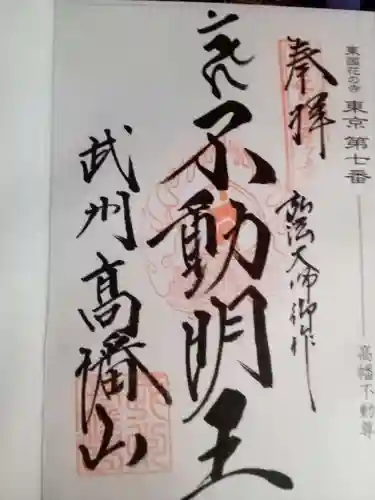 東国花の寺 東京 第七番
高幡不動尊
奉拝
弘法大師御作
不動明王
武州
高幡山